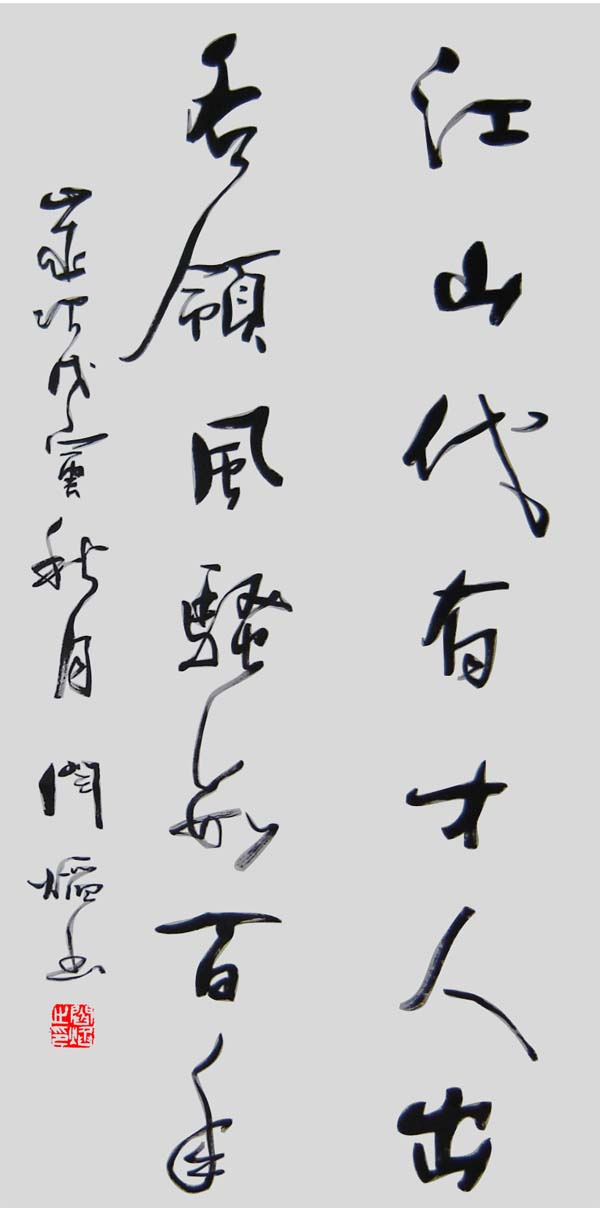 江山代有才人出
各領風騷數百年
歲次戊寅秋月 閆 書